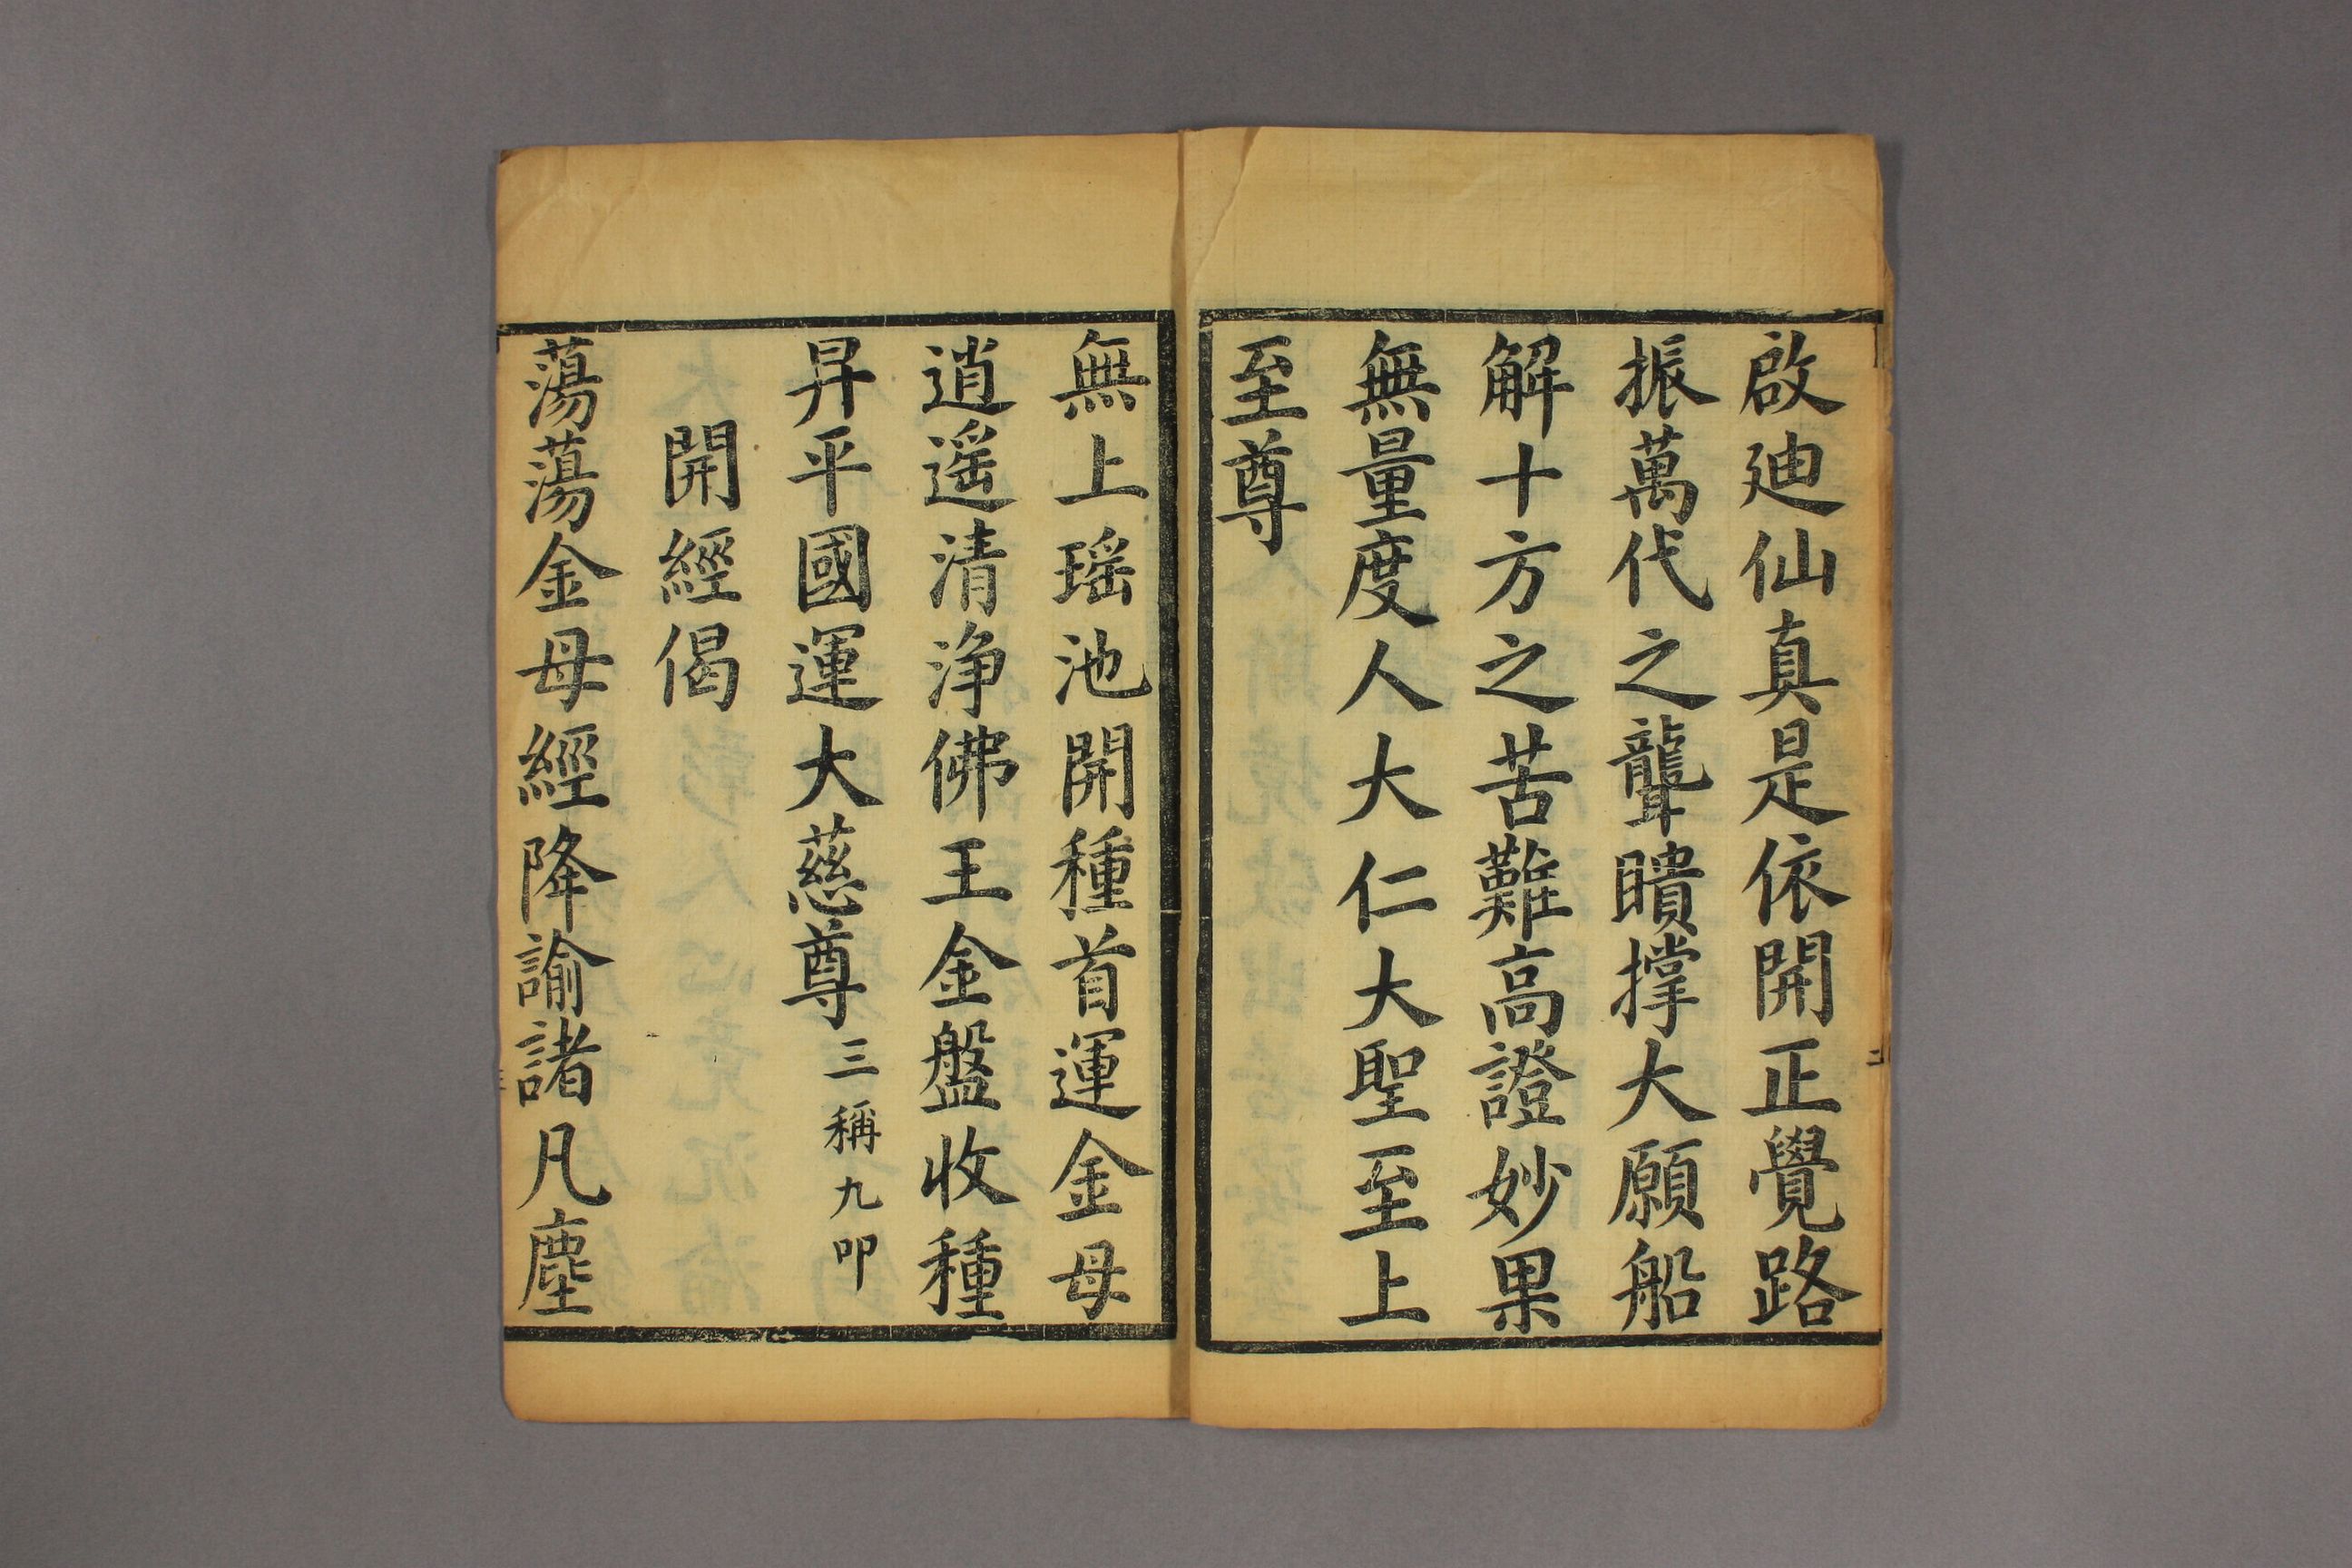 啟廸仙真是依開正覺路
振萬代之聾瞶撑大願船
解十方之苦難高證妙果
無量度人大仁大聖至上
至尊
無上瑶池開種首運金母
逍遥清浄佛王金盤收種
昇平國運大慈尊三稱九叩
開經偈
蕩蕩金母經降諭諸凡塵